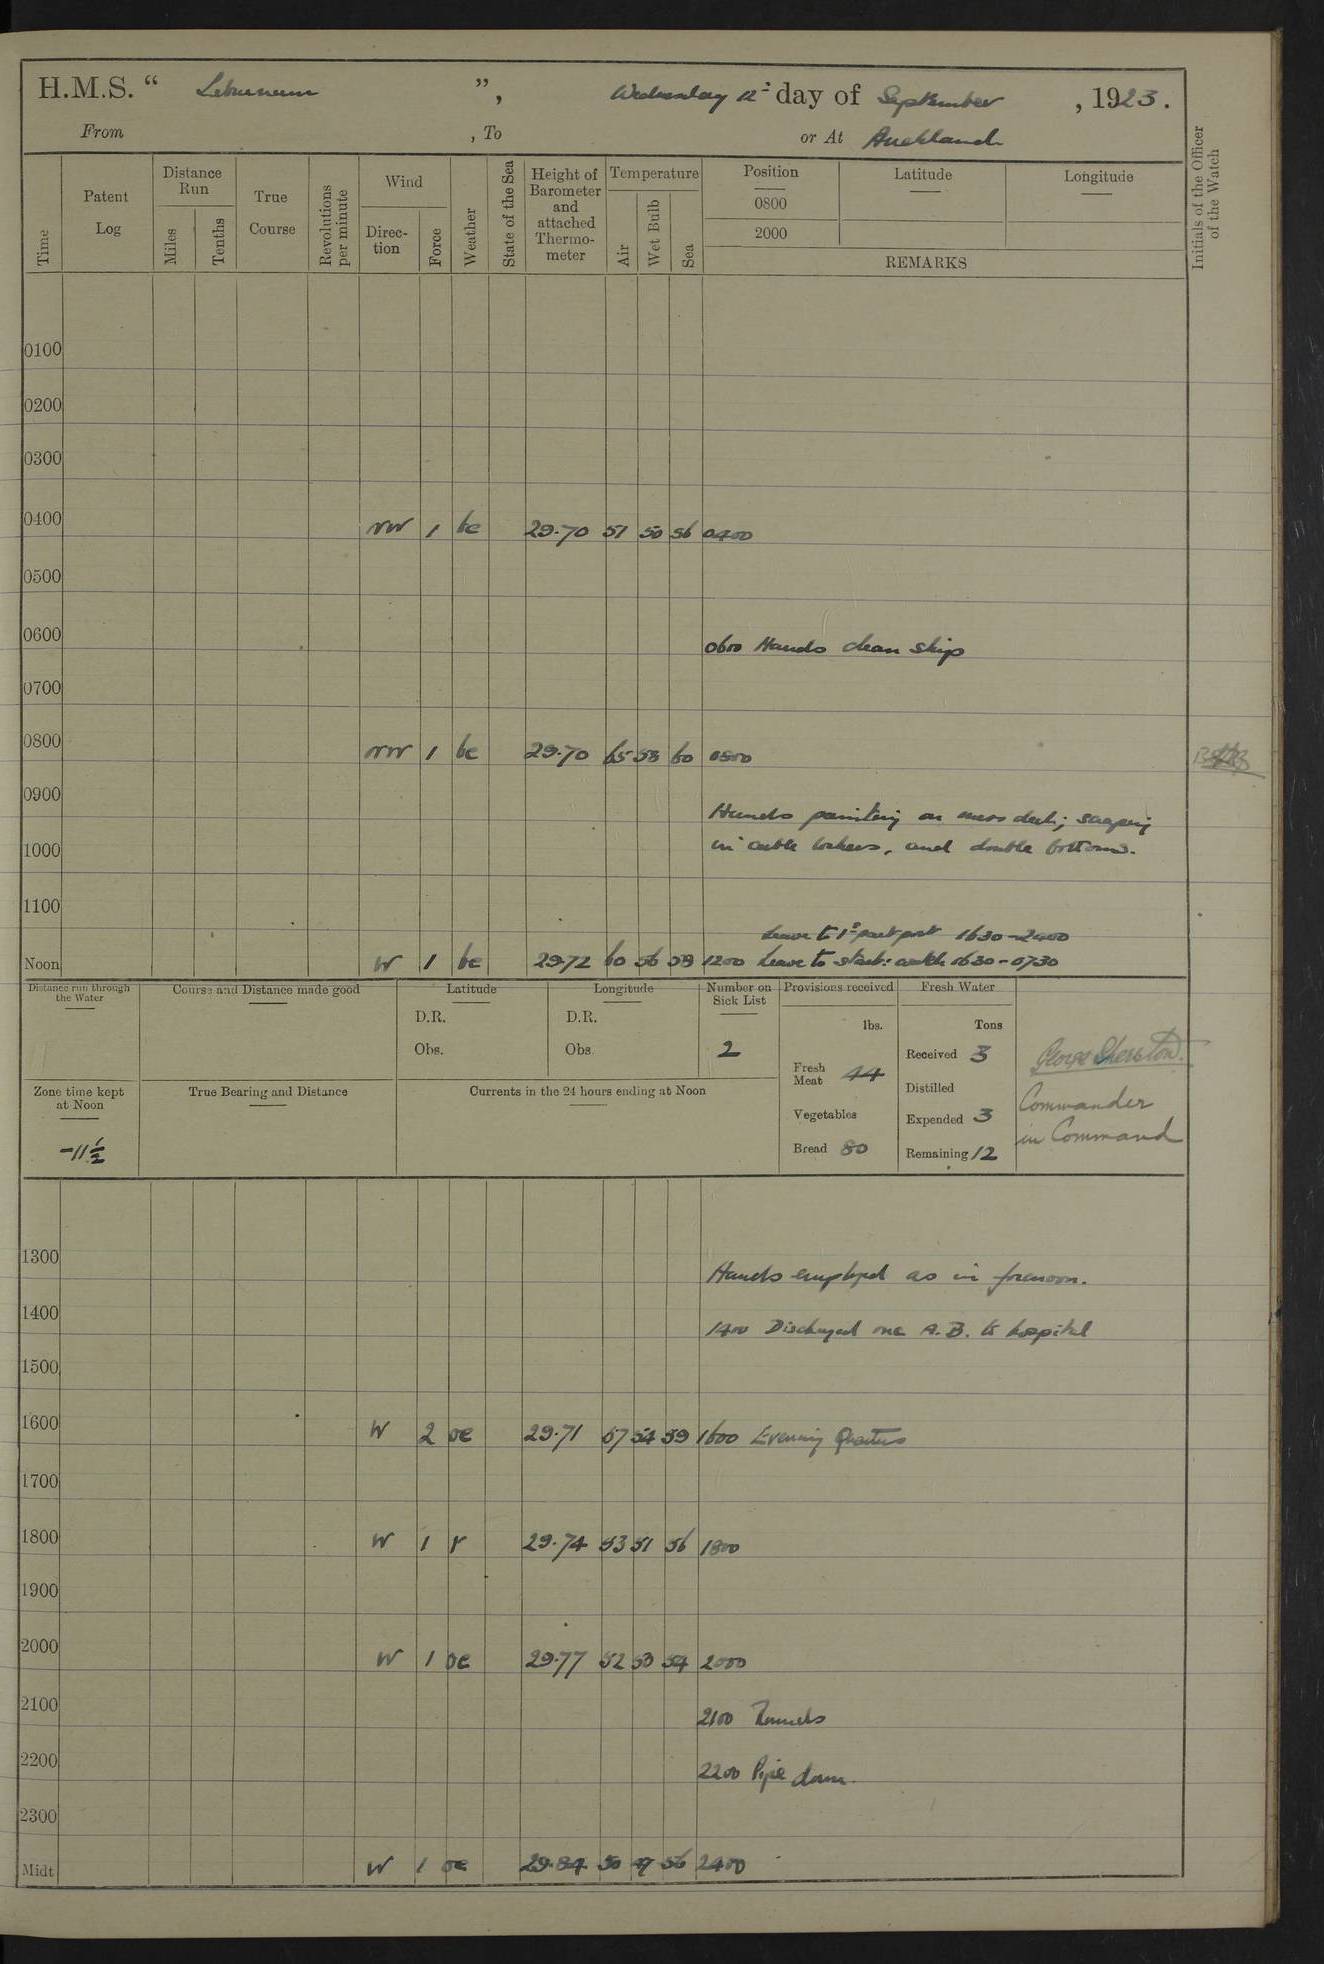 H.M.S. “ Laburnum ”, Wednesday 12th day of September, 1923.
From , To or At Auckland
Time
Patent Log
Distance Run
Miles
Tenths
True Course
Revolutions per minute
Wind
Direc-tion
Force
Weather
State of the Sea
Height of Barometer and attached Thermo-meter
Temperature
Air
Wet Bulb
Sea
Position
0800
2000
Latitude
Longitude
REMARKS
Initials of the Officer of the Watch
0100
0200
0300
0400 NW 1 bc 29.70 51 50 56 0400
0500
0600 0600 Hands clean ship
0700
0800 NW 1 bc 29.70 65 58 60 0800
0900 Hands painting on mess deck;
1000 in cable lockers, and double bottoms.
1100
Leave to 1st part port 1630-2400
Noon W 1 bc 29.72 60 56 58 1200 Leave to starb: watch 1630-0730
Distance run through the Water
Course and Distance made good
Latitude
D.R.
Obs.
Longitude
D.R.
Obs
Number on Sick List
2
Provisions received
lbs.
Fresh Meat 44
Vegetables
Bread 80
Fresh Water
Tons
Received 3
Distilled
Expended 3
Remaining 12
George Sherston.
Commander
in Command
Zone time kept at Noon
-11½
True Bearing and Distance
Currents in the 24 hours ending at Noon
1300 Hands employed as in forenoon.
1400 1400 Discharged one A.B. to hospital
1500
1600 W 2 oc 29.71 57 54 59 1600 Evening Quarters
1700
1800 W 1 r 29.74 53 51 56 1800
1900
2000 W 1 oc 29.77 52 50 54 2000
2100 2100 Rounds
2200 2200 Pipe down.
2300
Midt W 1 oc 29.84 50 47 56 2400